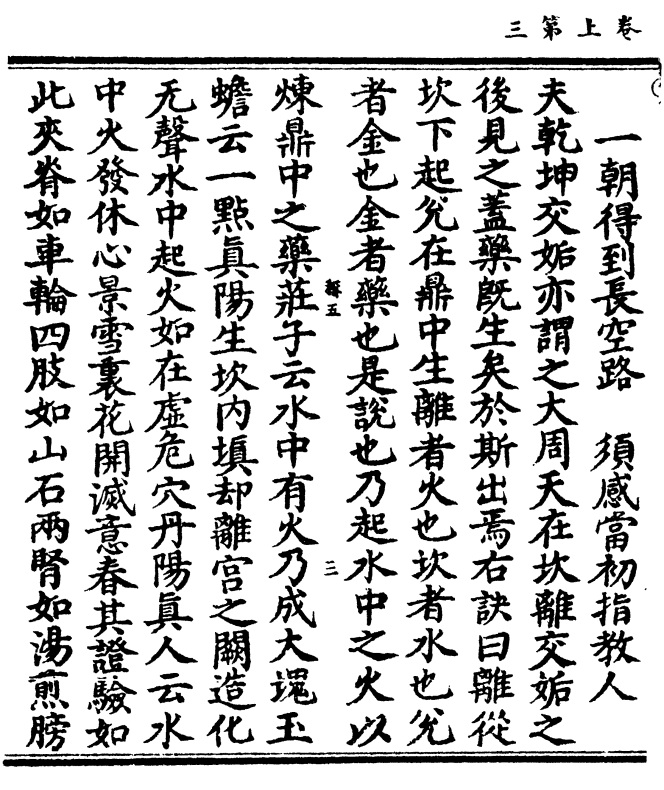 卷上第三
一朝得到長空路　須感當初指教人
夫乾坤交姤亦謂之大周天在坎離交姤之
後見之蓋藥旣生矣於斯出焉右訣曰離從
坎下起兊在鼎中生離者火也坎者水也兊
者金也金者藥也是說也乃起水中之火以
薛五　三
煉鼎中之藥莊子云水中有火乃成大塊玉
蟾云一點眞陽生坎內塡却離宮之闕造化
无聲水中起火妙在虛危穴丹陽眞人云水
中火發休心景雪裏花開滅意春其證驗如
此夾脊如車輪四肢如山石兩腎如湯煎膀